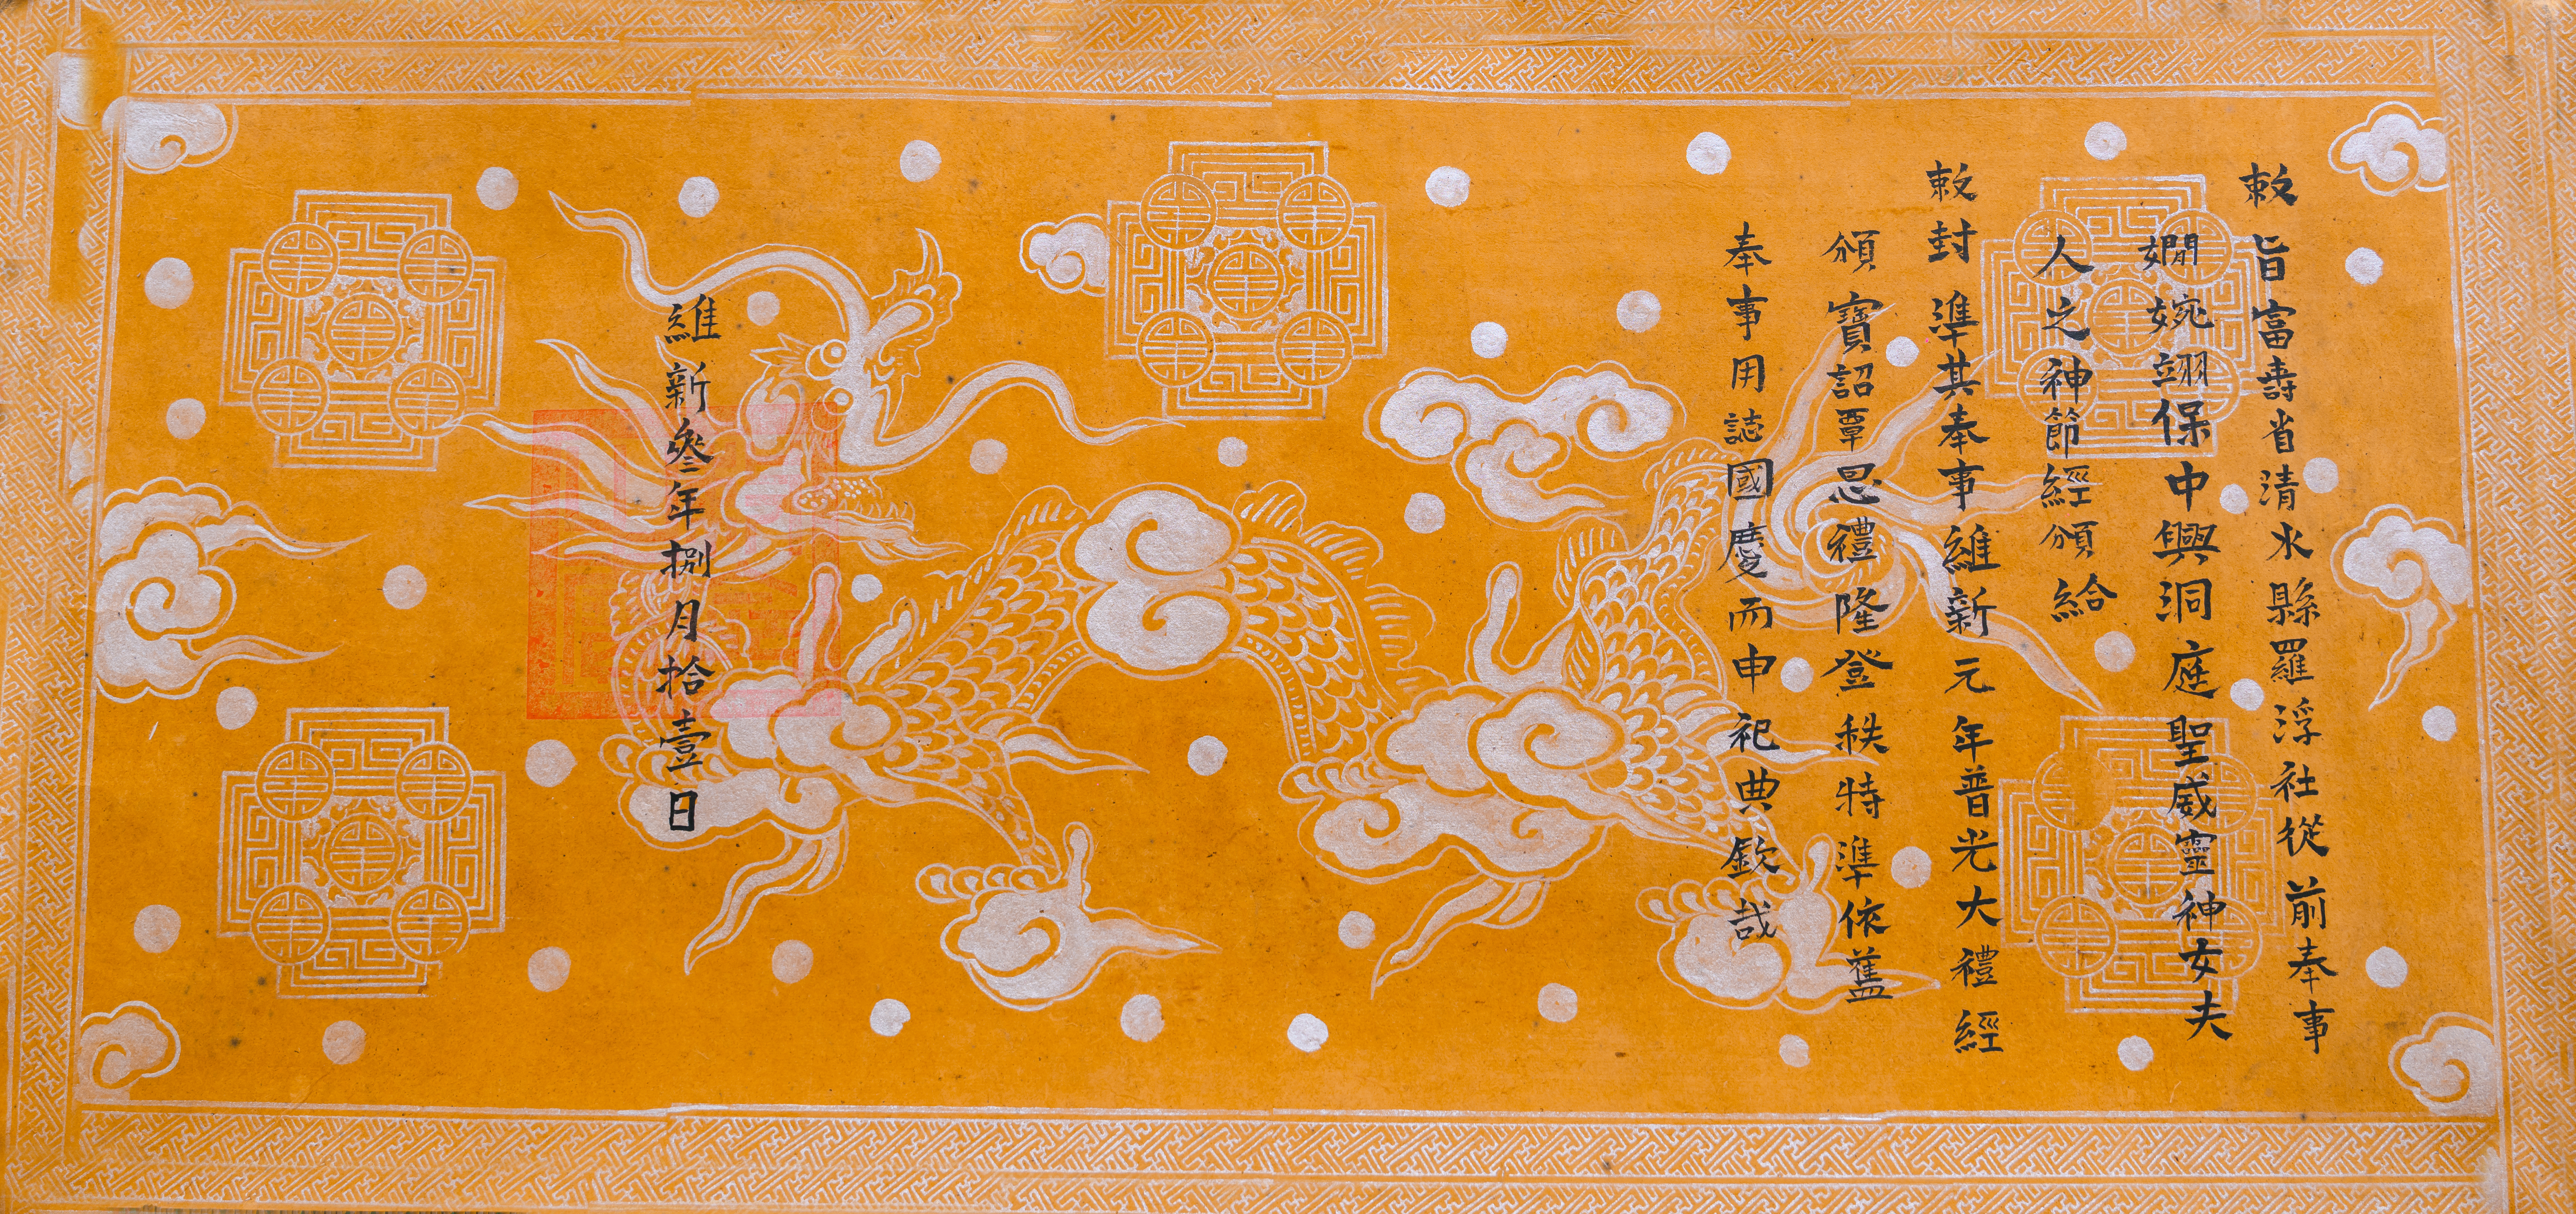 敕旨富壽省清水縣羅浮社從前奉事
嫺婉翊保中興洞庭聖威靈神女夫
人之神節經頒給
敕封準其奉事維新元年晋光大禮經
頒寶詔覃恩禮隆登秩特準依舊
奉事用誌國慶而申祀典欽哉
維新叁年捌月拾壹日